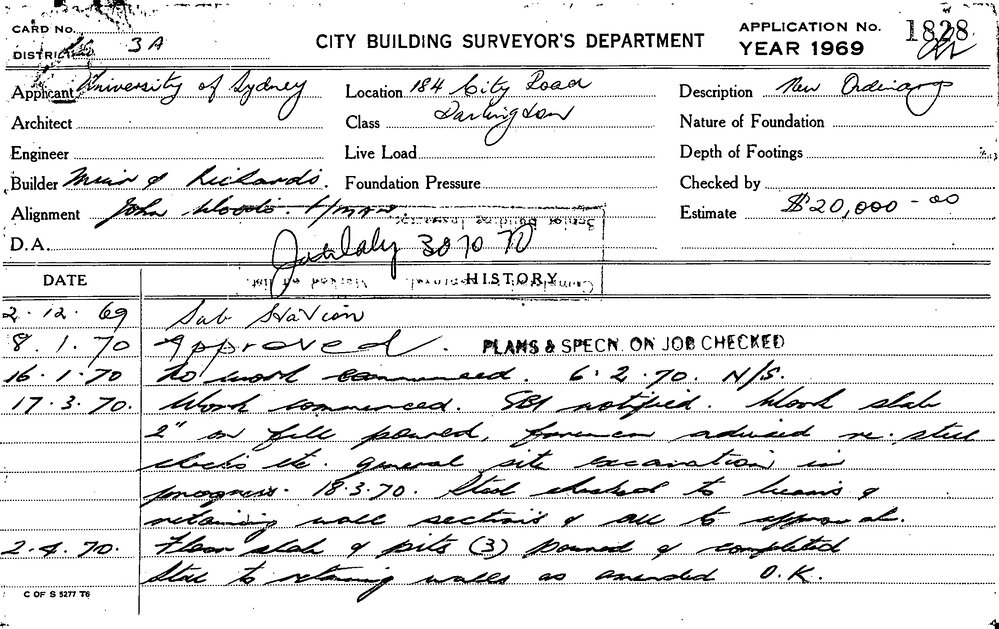 CARD No.
DISTRICT 3A
CITY BUILDING SURVEYOR'S DEPARTMENT
APPLICATION No. 1828
YEAR 1969
Applicant University of Sydney
Location 184 City Road
Description New Ordinary
Architect
Class Darlington
Nature of Foundation
Engineer
Live Load
Depth of Footings
Builder Muir & Richards.
Foundation Pressure
Checked by
Alignment John Woods.
Estimate $20,000-00
D.A.
30 70
DATE
HISTORY
2.12.69 Sub Station
8.1.70 Approved. PLANS & SPECN. ON JOB CHECKED
16.1.70 No work commenced. 6.2.70. N/S.
17.3.70. Work commenced. SBI notified. Work slab
2" on fill poured, foreman advised re. steel
checks etc. general site excavation in
progress. 18.3.70. Steel checked to beams &
retaining wall sections & all to approval.
2.4.70. Floor slab & pits (3) poured & completed
Steel to retaining walls as amended O.K.
C OF S 5277 T6